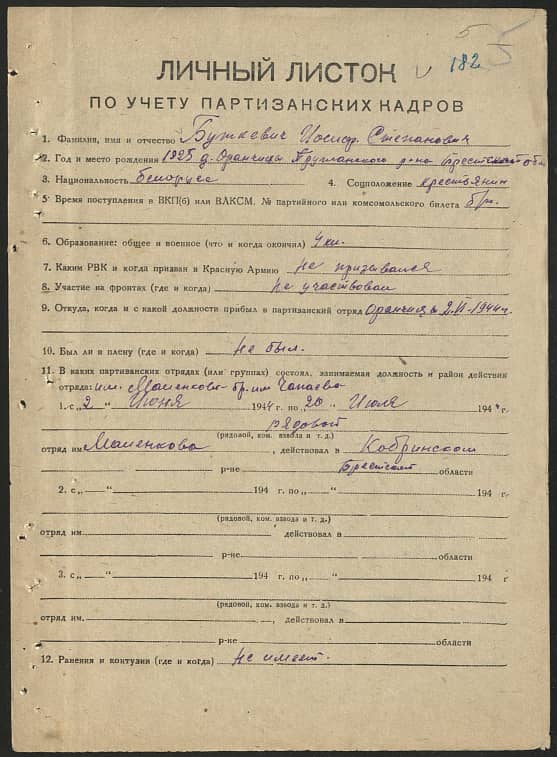 182
ЛИЧНЫЙ ЛИСТОК
ПО УЧЕТУ ПАРТИЗАНСКИХ КАДРОВ
1. Фамилия, имя и отчество Буткевич Иосиф Степанович
2. Год и место рождения 1925 д. Оранчицы Пружанского р-на Брестской обл
3. Национальность Белорус 4. Соцположение крестьянин
5. Время поступления в ВКП(б) или ВЛКСМ. № партийного или комсомольского билета б/п.
6. Образование: общее и военное (что и когда окончил) 4 кл.
7. Каким РВК и когда призван в Красную Армию не призывался
8. Участие на фронтах (где и когда) не участвовал
9. Откуда, когда и с какой должности прибыл в партизанский отряд Оранчицы 2.VI-1944г.
10. Был ли в плену (где и когда) не был.
11. В каких партизанских отрядах (или группах) состоял, занимаемая должность и район действия
отряда: им. Маленкова бр. им Чапаева
1. с „2 " Июня 1944 г. по „20 " Июля 1944 г.
рядовой
(рядовой, ком. взвода и т. д.)
отряд им Маленкова, действовал в Кобринском
р-не Брестской области
2. с „ " 194 г. по „ " 194 г.
(рядовой, ком. взвода и т. д.)
отряд им. действовал в
р-не области
3. с „ " 194 г. по „ " 194 г
(рядовой, ком. взвода и т. д.)
отряд им. , действовал в
р-не области
12. Ранения и контузии (где и когда) не имеет.